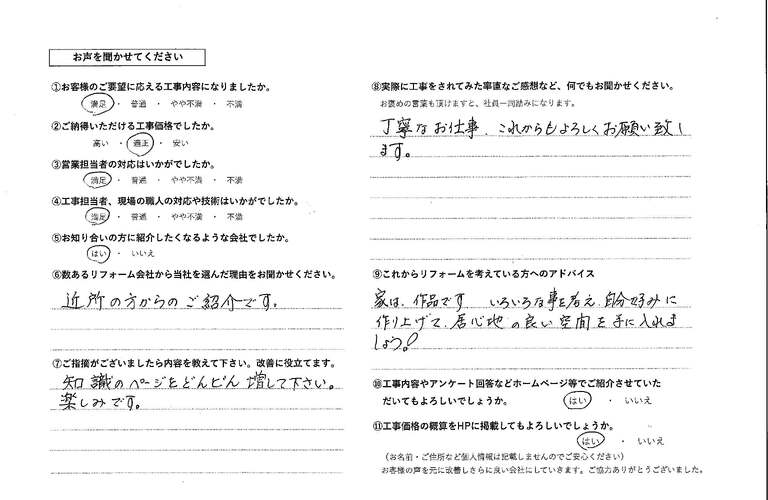 お声を聞かせてください
①お客様のご要望に応える工事内容になりましたか。
満足 ・ 普通 ・ やや不満 ・ 不満
②ご納得いただける工事価格でしたか。
高い ・ 適正 ・ 安い
③営業担当者の対応はいかがでしたか。
満足 ・ 普通 ・ やや不満 ・ 不満
④工事担当者、現場の職人の対応や技術はいかがでしたか。
満足 ・ 普通 ・ やや不満 ・ 不満
⑤お知り合いの方に紹介したくなるような会社でしたか。
はい ・ いいえ
⑥数あるリフォーム会社から当社を選んだ理由をお聞かせください。
近所の方からのご紹介です。
⑦ご指摘がございましたら内容を教えて下さい。改善に役立てます。
知識のページをどんどん増して下さい。
楽しみです。
⑧実際に工事をされてみた率直なご感想など、何でもお聞かせください。
お褒めの言葉も頂けますと、社員一同励みになります。
丁寧なお仕事、これからもよろしくお願い致し
ます。
⑨これからリフォームを考えている方へのアドバイス
家は、作品です いろいろな事を考え、自分好みに
作り上げて、居心地の良い空間を手に入れま
しょう!
⑩工事内容やアンケート回答などホームページ等でご紹介させていた
だいてもよろしいでしょうか。 はい ・ いいえ
⑪工事価格の概算をHPに掲載してもよろしいでしょうか。
はい ・ いいえ
(お名前・ご住所など個人情報は記載しませんのでご安心ください)
お客様の声を元に改善しさらに良い会社にしていきます。ご協力ありがとうございました。